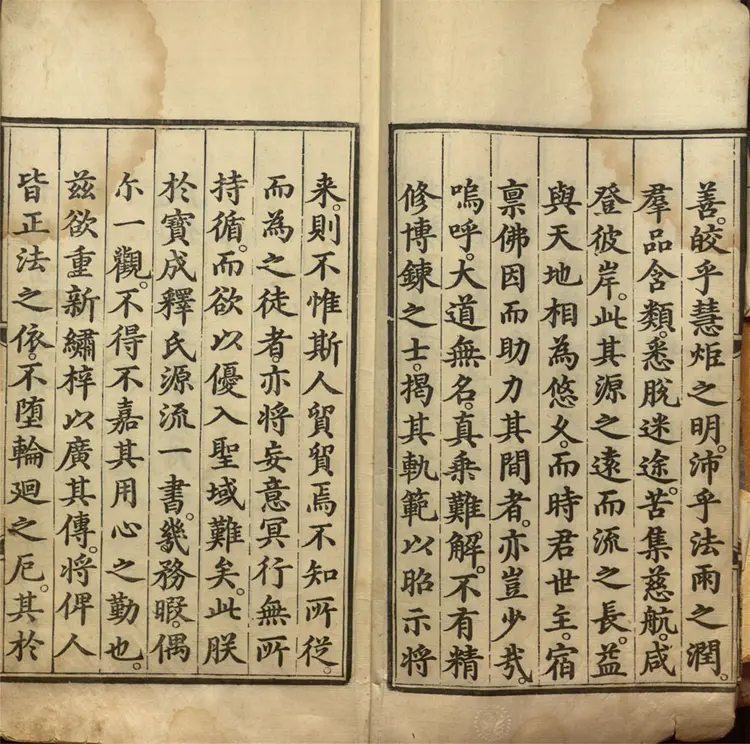 善。皎乎慧炬之明。沛乎法雨之潤。
羣品含類。悉脫迷途。苦集慈航。咸
登彼岸。此其源之遠而流之長。益
與天地相為悠久。而時君世主。宿
禀佛因而助力其間者。亦豈少㢤。
嗚呼。大道無名。真乗難解。不有精
修博鍊之士。揭其軌範以昭示将
来。則不惟斯人貿貿焉不知所從。
而為之徒者亦将妄意冥行無所
持循。而欲以優入聖域難矣。此朕
於寳成釋氏源流一書。幾務暇。偶
尓一觀。不得不嘉其用心之勤也。
兹欲重新繡梓以廣其傳。将俾人
皆正法之依。不堕輪廻之厄。其於